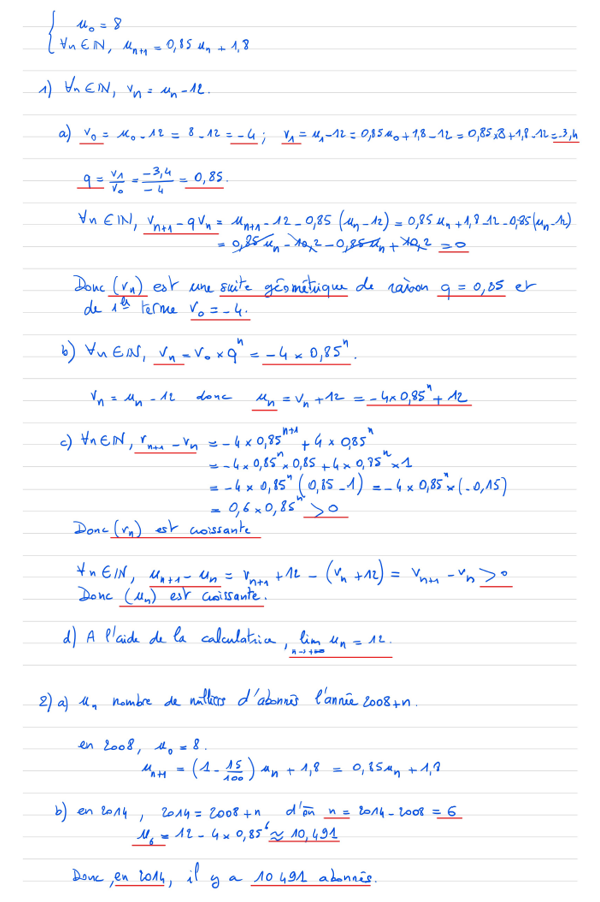 { u₀ = 8
∀n∈ℕ, uₙ₊₁ = 0,85 uₙ + 1,8
1) ∀n∈ℕ, vₙ = uₙ - 12.
a) v₀ = u₀ - 12 = 8 - 12 = -4 ; v₁ = u₁ - 12 = 0,85 u₀ + 1,8 - 12 = 0,85×8 + 1,8 - 12 = -3,4
q = v₁/v₀ = -3,4/-4 = 0,85.
∀n∈ℕ, vₙ₊₁ - q vₙ = uₙ₊₁ - 12 - 0,85 (uₙ - 12) = 0,85 uₙ + 1,8 - 12 - 0,85 (uₙ - 12)
= 0,85 uₙ - 10,2 - 0,85 uₙ + 10,2 = 0
Donc (vₙ) est une suite géométrique de raison q = 0,85 et
de 1er terme v₀ = -4.
b) ∀n∈ℕ, vₙ = v₀ × qⁿ = -4 × 0,85ⁿ.
vₙ = uₙ - 12 donc uₙ = vₙ + 12 = -4 × 0,85ⁿ + 12
c) ∀n∈ℕ, vₙ₊₁ - vₙ = -4 × 0,85ⁿ⁺¹ + 4 × 0,85ⁿ
= -4 × 0,85ⁿ × 0,85 + 4 × 0,85ⁿ × 1
= -4 × 0,85ⁿ (0,85 - 1) = -4 × 0,85ⁿ × (-0,15)
= 0,6 × 0,85ⁿ > 0
Donc (vₙ) est croissante
∀n∈ℕ, uₙ₊₁ - uₙ = vₙ₊₁ + 12 - (vₙ + 12) = vₙ₊₁ - vₙ > 0
Donc (uₙ) est croissante.
d) A l'aide de la calculatrice, lim n→+∞ uₙ = 12.
2) a) uₙ nombre de milliers d'abonnés l'année 2008+n.
en 2008, u₀ = 8.
uₙ₊₁ = (1 - 15/100) uₙ + 1,8 = 0,85 uₙ + 1,8
b) en 2014, 2014 = 2008 + n d'où n = 2014 - 2008 = 6
u₆ = 12 - 4 × 0,85⁶ ≈ 10,491
Donc, en 2014, il y a 10 491 abonnés.